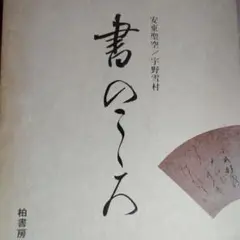 安東聖空/宇野雪村
書のこころ
柏書房